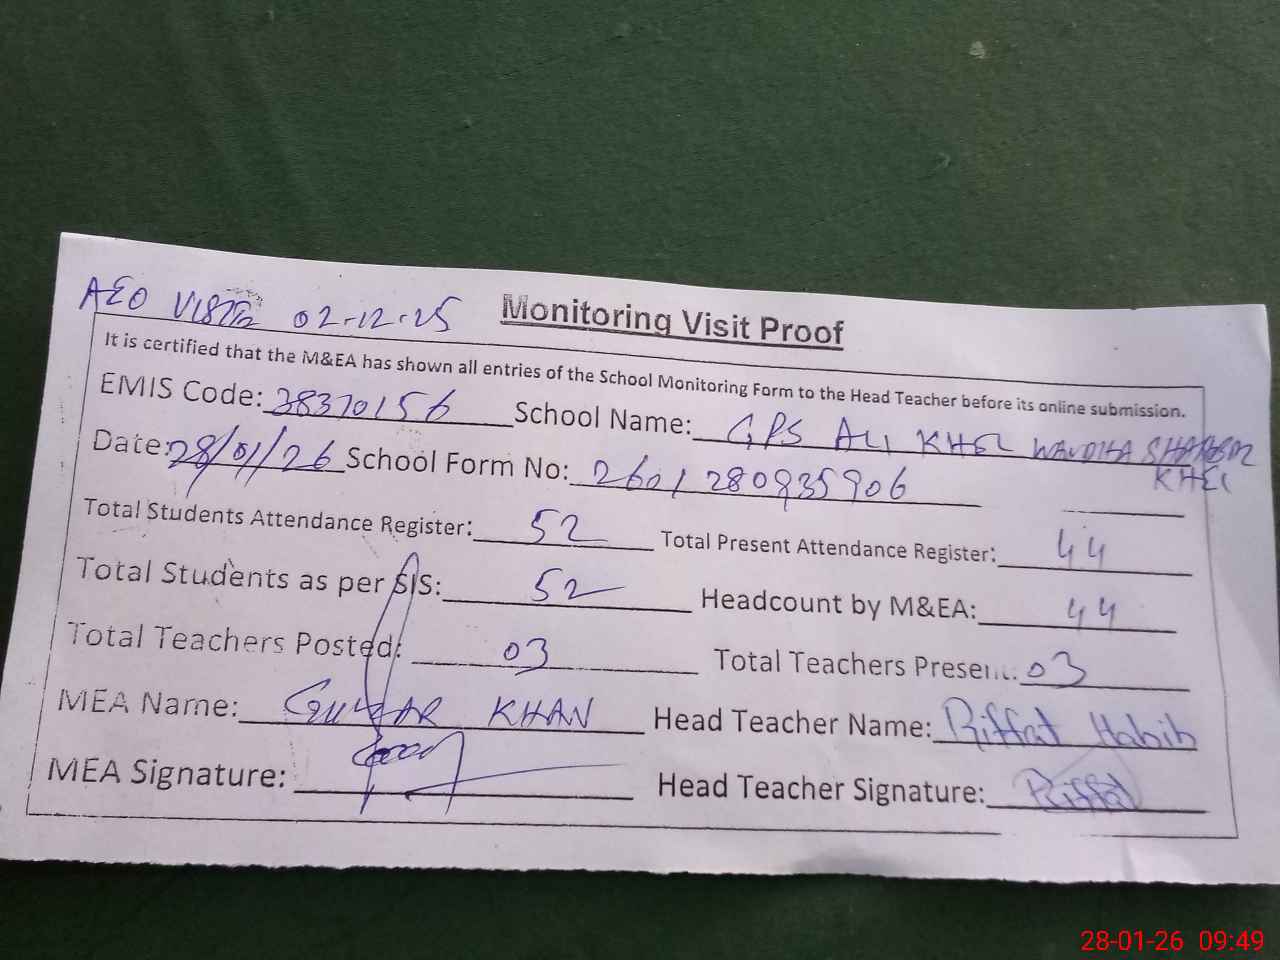 AEO VISIT 02-12-25
Monitoring Visit Proof
It is certified that the M&EA has shown all entries of the School Monitoring Form to the Head Teacher before its online submission.
EMIS Code: 38370156 School Name: GPS ALI KHEL WANDHA KHEL
Date: 28/01/26 School Form No: 2601280935906
Total Students Attendance Register: 52 Total Present Attendance Register: 44
Total Students as per SIS: 52 Headcount by M&EA: 44
Total Teachers Posted: 03 Total Teachers Present: 03
MEA Name: GULZAR KHAN Head Teacher Name: Riffat Habib
MEA Signature: Head Teacher Signature: Riffat
28-01-26 09:49